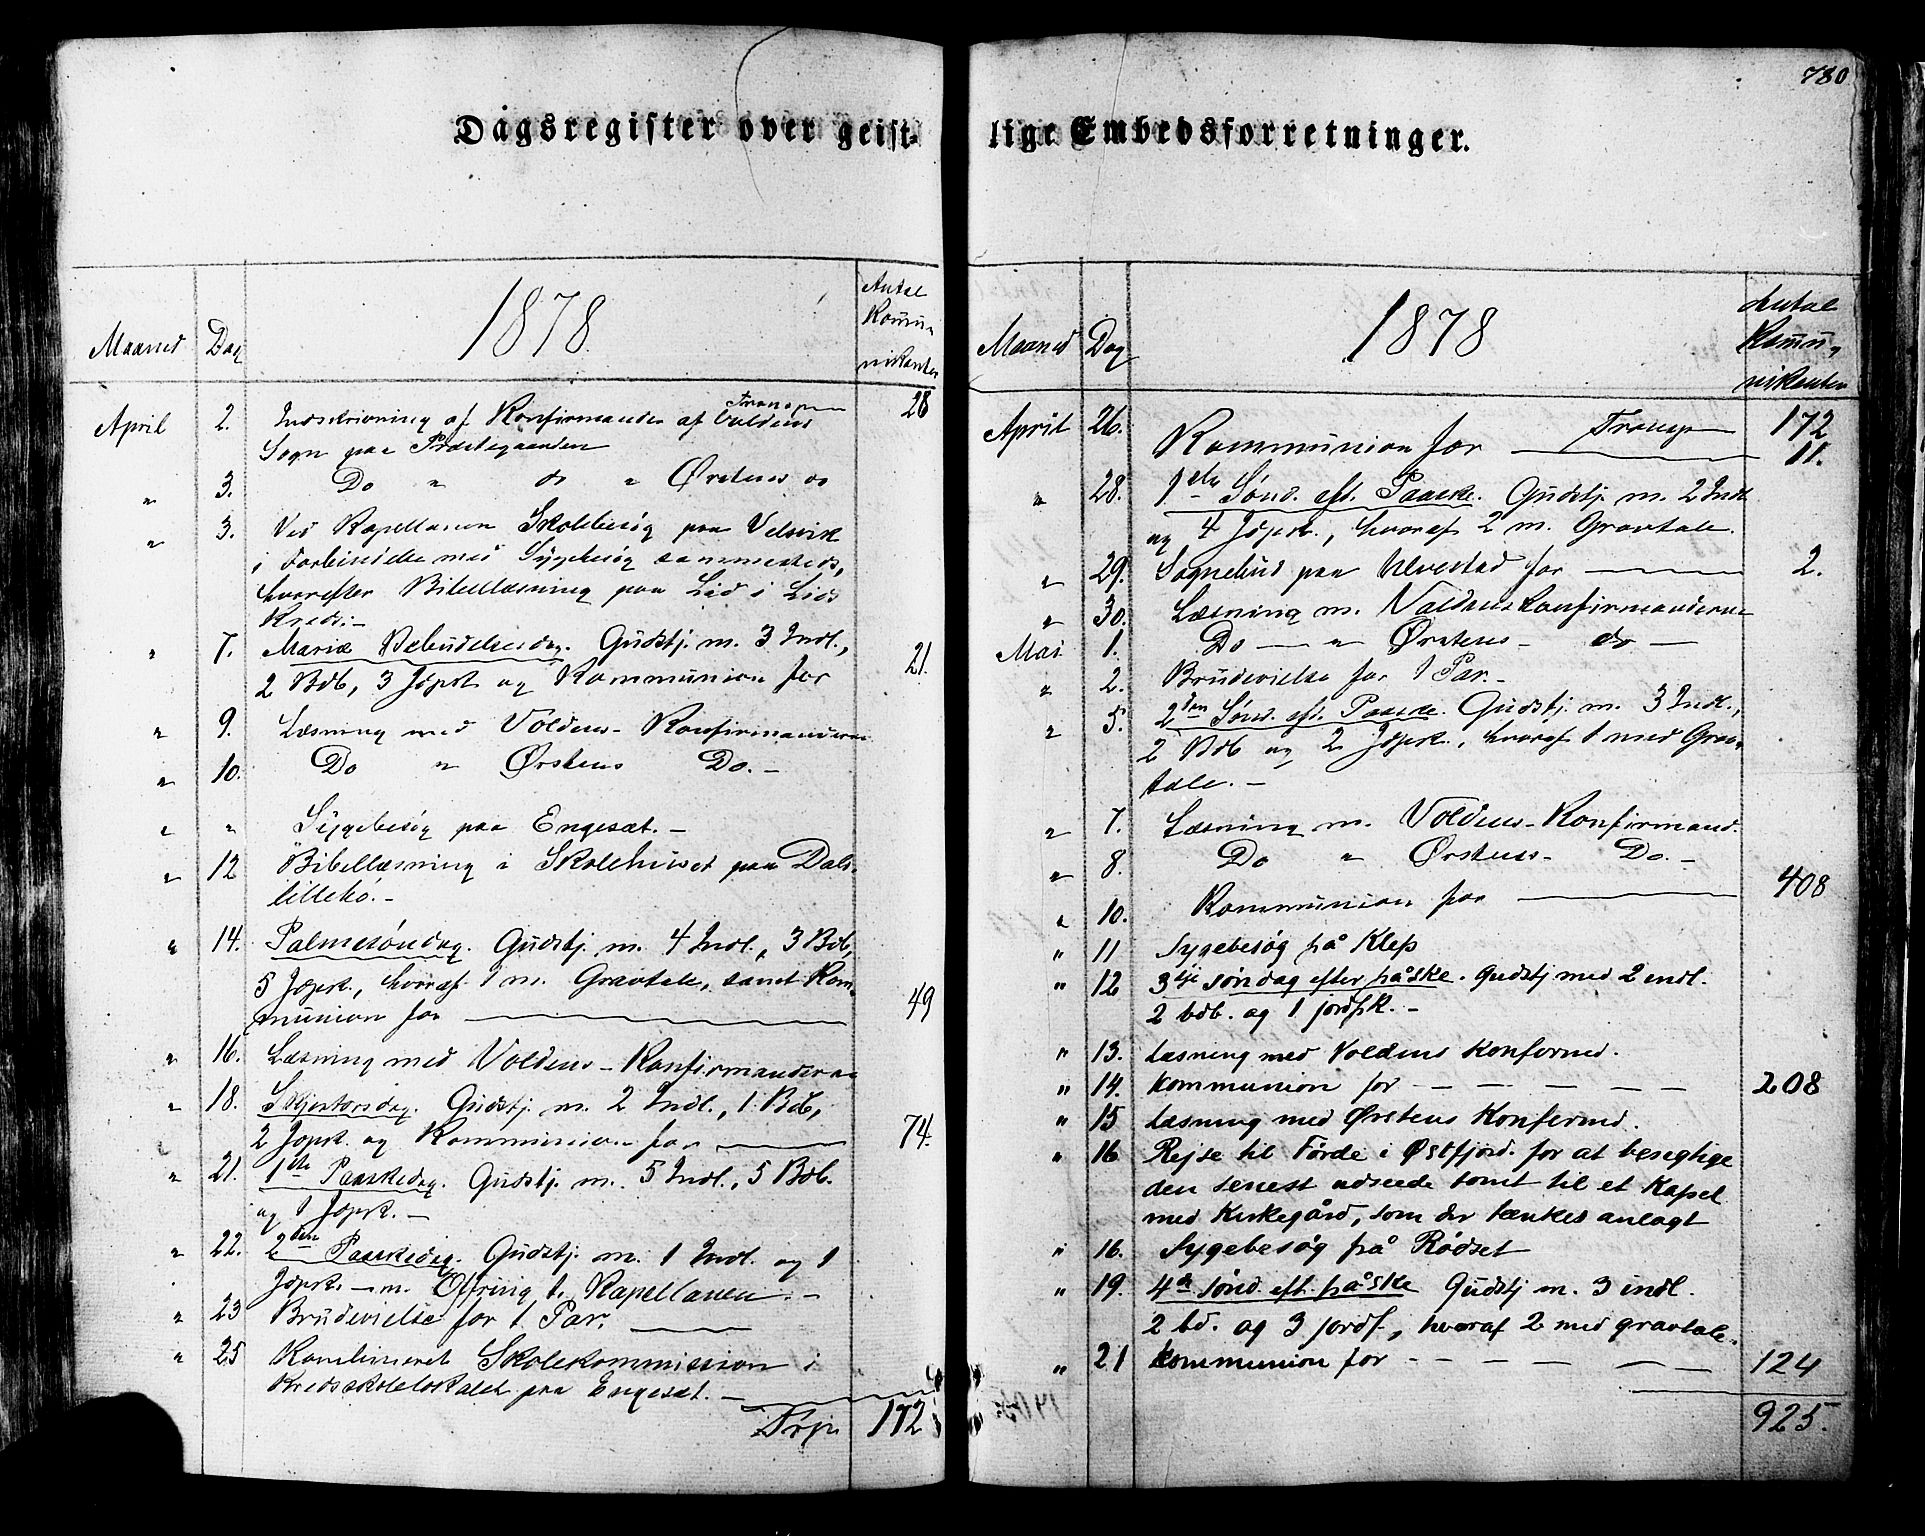 780
Dagsregister over geist-
lige Embedsforretninger.
Maaned Dag 1878 Antal Kommu-
nikanter
Transp 28
April 2. Indskrivning af Konfirmander af Voldens
Sogn paa Præstegaarden
" 3. Do " do " Ørstens do
" 3. Ved Kapellanen Skolebesøg paa Velsvik
i Forbindelse med Sygebesøg sammesteds,
hvorefter Bibellæsning paa Lid i Lids
Kreds.-
" 7. Mariæ Bebudelsesdag. Gudstj. m. 3 Indl.,
2 Bdb, 3 Jdpk og Kommunion for 21.
" 9. Læsning med Voldens-Konfirmanderne
" 10. Do " Ørstens Do.-
" " Sygebesøg paa Engesæt.-
" 12 Bibellæsning i Skolehuset paa Dals-
lillebø.-
" 14. Palmesøndag. Gudstj. m. 4 Indl., 3 Bdb,
5 Jdpk., hvoraf 1 m. Gravtale, samt Kom-
munion for 49
" 16. Læsning med Voldens-Konfirmanderne
" 18. Skjertorsdag. Gudstj. m. 2 Indl., 1 Bdb,
2 Jdpk. og Kommunion for 74.
" 21. 1ste Paaskedag. Gudstj. m. 5 Indl., 5 Bdb.
og 1 Jdpk.-
" 22. 2den Paaskedag. Gudstj. m. 1 Indl. og 1
Jdpk.- m. Offring t. Kapellanen.-
" 23 Brudevielse for 1 Par.
" 25 Kombineret Skolekommission i
Kredsskolelokalet paa Engesæt.-
Trp 172
Maaned Dag 1878 Antal
Kommu-
nikanter
Transp 172
April 26. Kommunion for 11.
" 28. 1ste Sønd. eft. Paaske. Gudstj. m. 2 Indl
og 4 Jdpk., hvoraf 2 m. Gravtale.
" 29. Sognebud paa Ulvestad for 2.
" 30. Læsning m. Voldens Konfirmanderne
Mai 1. Do " Ørstens- do
" 2. Brudevielse for 1 Par.-
" 5. 2den Sønd. eft. Paaske. Gudstj. m. 3 Indl.,
2 Bdb og 2 Jdpk., hvoraf 1 med Grav-
tale.-
" 7. Læsning m. Voldens-Konfirmand.
" 8. Do " Ørstens- Do.-
" 10. Kommunion for 408
" 11 Sygebesøg på Klep
" 12 3die søndag efter påske. Gudstj med 2 indl.
2 bdb. og 1 jordpk.-
" 13. Læsning med Voldens Konfermd.
" 14. Kommunion for - - - - - 208
" 15 Læsning med Ørstens Konfermd.
" 16 Rejse til Førde i Østfjord. for at besegtige
den senest udseede tomt til et Kapel
med Kirkegård, som der tænkes anlagt
" 16. Sygebesøg på Rødset
" 19. 4de sønd. eft. påske Gudstj m. 3 indl.
2 bd. og 3 jordf, hvoraf 2 med gravtale.
" 21 Kommunion for - - - - - 124
925.